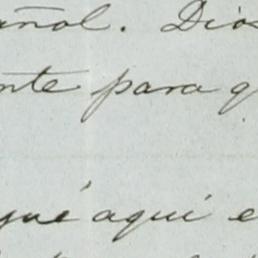 añol. Dios
nte para q
gué aquí e